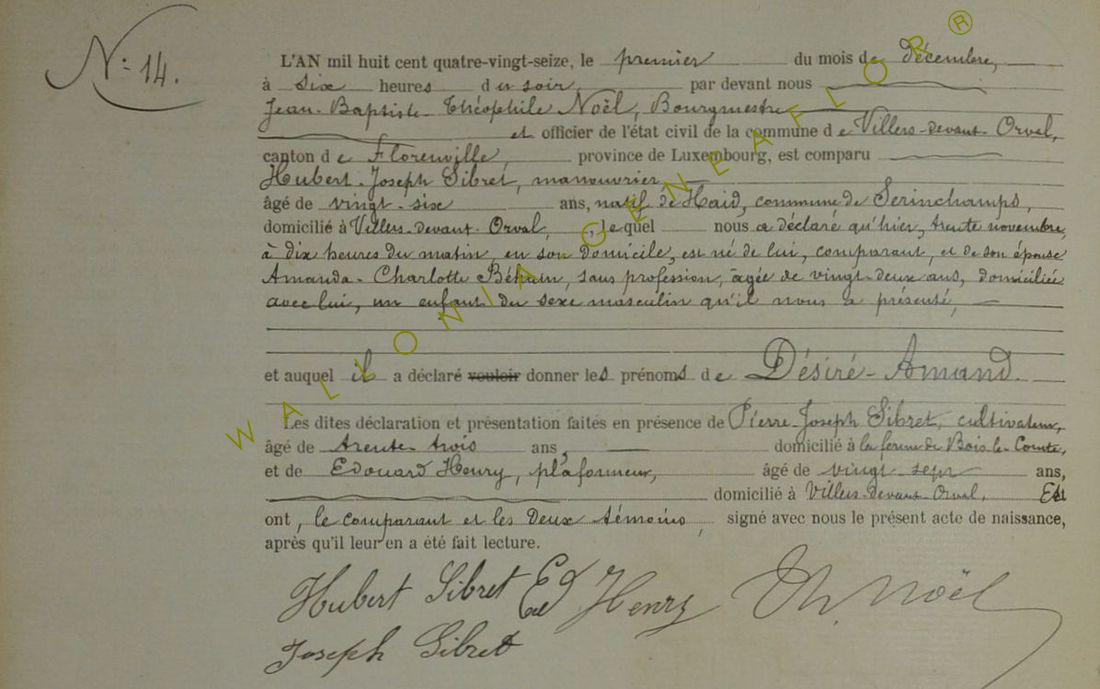 N° 14.
L'AN mil huit cent quatre-vingt-seize, le premier du mois de décembre,
à six heures du soir, par devant nous
Jean-Baptiste-Théophile Noël, Bourgmestre
et officier de l'état civil de la commune de Villers-devant-Orval,
canton de Florenville, province de Luxembourg, est comparu
Hubert-Joseph Sibret, manouvrier
âgé de vingt-six ans, natif de Haid, commune de Serinchamps,
domicilié à Villers-devant-Orval, lequel nous a déclaré qu'hier, trente novembre,
à dix heures du matin, en son domicile, est né de lui, comparant, et de son épouse
Amanda-Charlotte, sans profession, âgée de vingt-deux ans, domiciliée
avec lui, un enfant du sexe masculin qu'il nous a présenté,
et auquel il a déclaré vouloir donner les prénoms de Désiré-Amand.
Les dites déclaration et présentation faites en présence de Pierre-Joseph Sibret, cultivateur,
âgé de trente-trois ans, domicilié à la ferme de Bois-le-Comte,
et de Edouard Henry, plafonneur, âgé de vingt sept ans,
domicilié à Villers-devant-Orval. Et
ont, le comparant et les deux témoins, signé avec nous le présent acte de naissance,
après qu'il leur en a été fait lecture.
Hubert Sibret Ed Henry Th. Noël
Joseph Sibret
WALLONIA GENEAFLOR ®